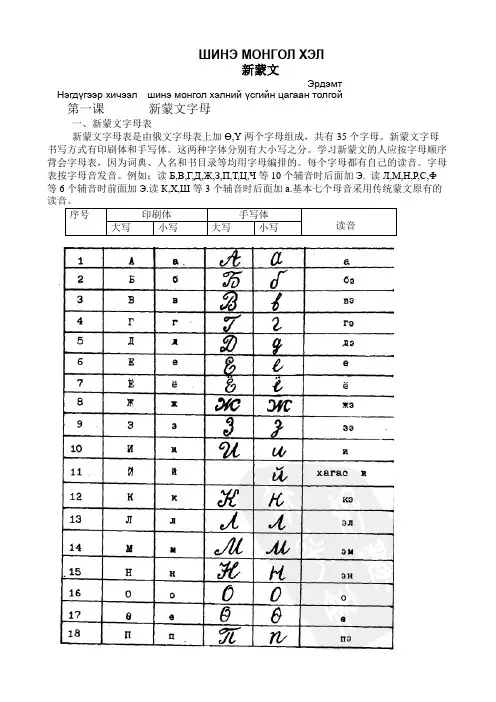 ШИНЭ МОНГОЛ ХЭЛ
新蒙文
Эрдэмт
Нэгдүгээр хичээл шинэ монгол хэлний үсгийн цагаан толгой
第一课 新蒙文字母
一、新蒙文字母表
新蒙文字母表是由俄文字母表上加 Ө,Ү 两个字母组成，共有 35 个字母。新蒙文字母
书写方式有印刷体和手写体。这两种字体分别有大小写之分。学习新蒙文的人应按字母顺序
背会字母表，因为词典、人名和书目录等均用字母编排的。每个字母都有自己的读音。字母
表按字母音发音。例如：读 Б,В,Г,Д,Ж,З,П,Т,Ц,Ч 等 10 个辅音时后面加 Э. 读 Л,М,Н,Р,С,Ф
等 6 个辅音时前面加 Э.读 К,Х,Ш 等 3 个辅音时后面加 а.基本七个母音采用传统蒙文原有的
读音。
序号 印刷体 手写体 读音
大写 小写 大写 小写
1 А а А а а
2 Б б Б б бэ
3 В в В в вэ
4 Г г Г г гэ
5 Д д Д д дэ
6 Е е Е е е
7 Ё ё Ё ё ё
8 Ж ж Ж ж жэ
9 З з З з зэ
10 И и И и и
11 Й й й хагас и
12 К к К к кэ
13 Л л Л л эл
14 М м М м эм
15 Н н Н н эн
16 О о О о о
17 Ө ө Ө ө ө
18 П п П п пэ